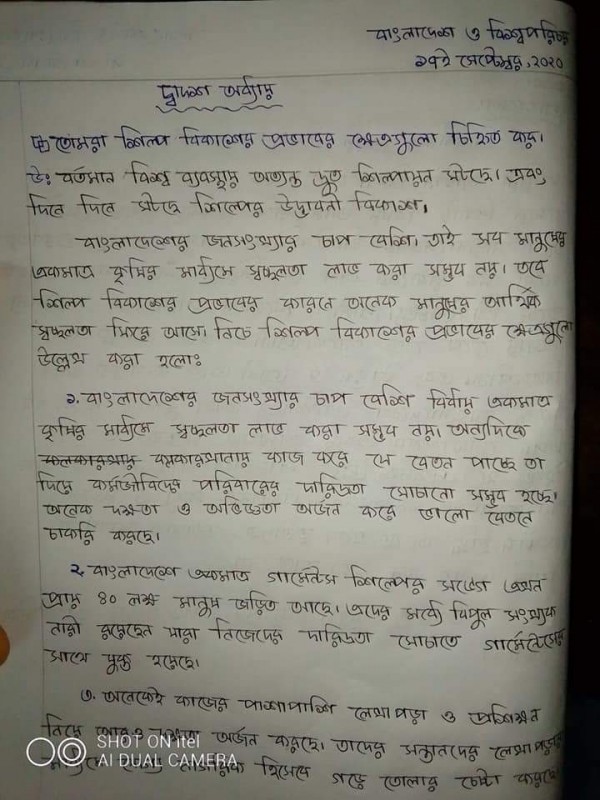 বাংলাদেশ ও বিশ্বপরিচয়
১৭ই সেপ্টেম্বর, ২০২০
দ্বাদশ অধ্যায়
তোমরা শিল্প বিকাশের প্রভাবের ক্ষেত্রগুলো চিহ্নিত কর।
উঃ বর্তমান বিশ্ব ব্যবস্থায় অত্যন্ত দ্রুত শিল্পায়ন ঘটছে। এবং
দিনে দিনে ঘটছে শিল্পের উদ্ভাবনী বিকাশ।
বাংলাদেশের জনসংখ্যার চাপ বেশি, তাই সব মানুষের
একমাত্র কৃষির মাধ্যমে স্বচ্ছলতা লাভ করা সম্ভব নয়। তবে
শিল্প বিকাশের প্রভাবের কারনে অনেক মানুষের আর্থিক
স্বচ্ছলতা ফিরে আসে। নিচে শিল্প বিকাশের প্রভাবের ক্ষেত্রগুলো
উল্লেখ করা হলোঃ
১. বাংলাদেশের জনসংখ্যার চাপ বেশি বিধায় একমাত্র
কৃষির মাধ্যমে স্বচ্ছলতা লাভ করা সম্ভব নয়। অন্যদিকে
কলকারখানায় কাজ করে যে বেতন পাচ্ছে তা
দিয়ে কর্মজীবিদের পরিবারের দারিদ্রতা ঘোচানো সম্ভব হচ্ছে।
অনেক দক্ষতা ও অভিজ্ঞতা অর্জন করে ভালো বেতনে
চাকরি করছে।
২. বাংলাদেশে একমাত্র গার্মেন্টস শিল্পের সঙ্গে এখন
প্রায় ৪০ লক্ষ মানুষ জড়িত আছে। এদের মধ্যে বিপুল সংখ্যক
নারী রয়েছেন যারা নিজেদের দারিদ্রতা ঘোচাতে গার্মেন্টসের
সাথে যুক্ত হয়েছে।
৩. অনেকেই কাজের পাশাপাশি লেখাপড়া ও প্রশিক্ষন
নিয়ে আরও দক্ষতা অর্জন করছে। তাদের সন্তানদের লেখাপড়ার
নাগরিক হিসেবে গড়ে তোলার চেষ্টা করছে।
SHOT ON itel
AI DUAL CAMERA